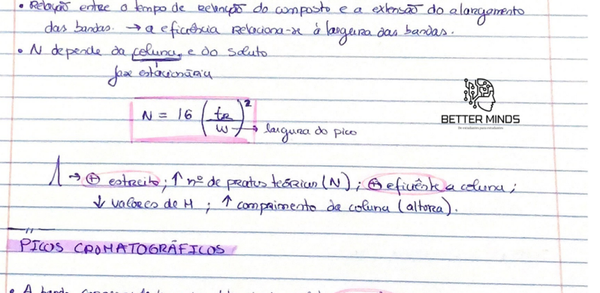 • Relação entre o tempo de retenção do composto e a extensão do alargamento
das bandas. → a eficiência relaciona-se à largura das bandas.
• N depende da coluna, e do soluto
fase estacionária
N = 16 (tR/W)² → largura do pico
BETTER MINDS
→ ⊕ estreito, ↑ nº de pratos teóricos (N); ⊕ eficiente a coluna;
↓ valores de H ; ↑ comprimento da coluna (altora).
PICOS CROMATOGRÁFICOS
• A banda